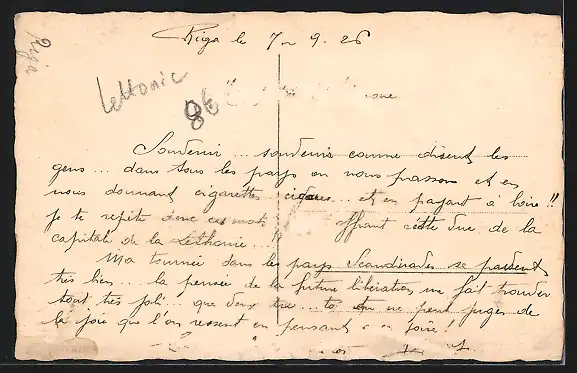 Riga
Riga le 7 - 9. 26
Lettonie
86
Souvenir... souvenir comme disent les
gens... dans tous les pays ou nous passons et en
nous donnant cigarettes cigares... et en payant à boire!!
je te repète donc ces mots offrant cette vue de la
capitale de la Lethonie...!!
Ma tournée dans les pays Scandinades se
très bien... la pensée de la future libération me fait trouver
tout très joli. que ne peut juger de
la joie que l'on ressent en pensant foire!